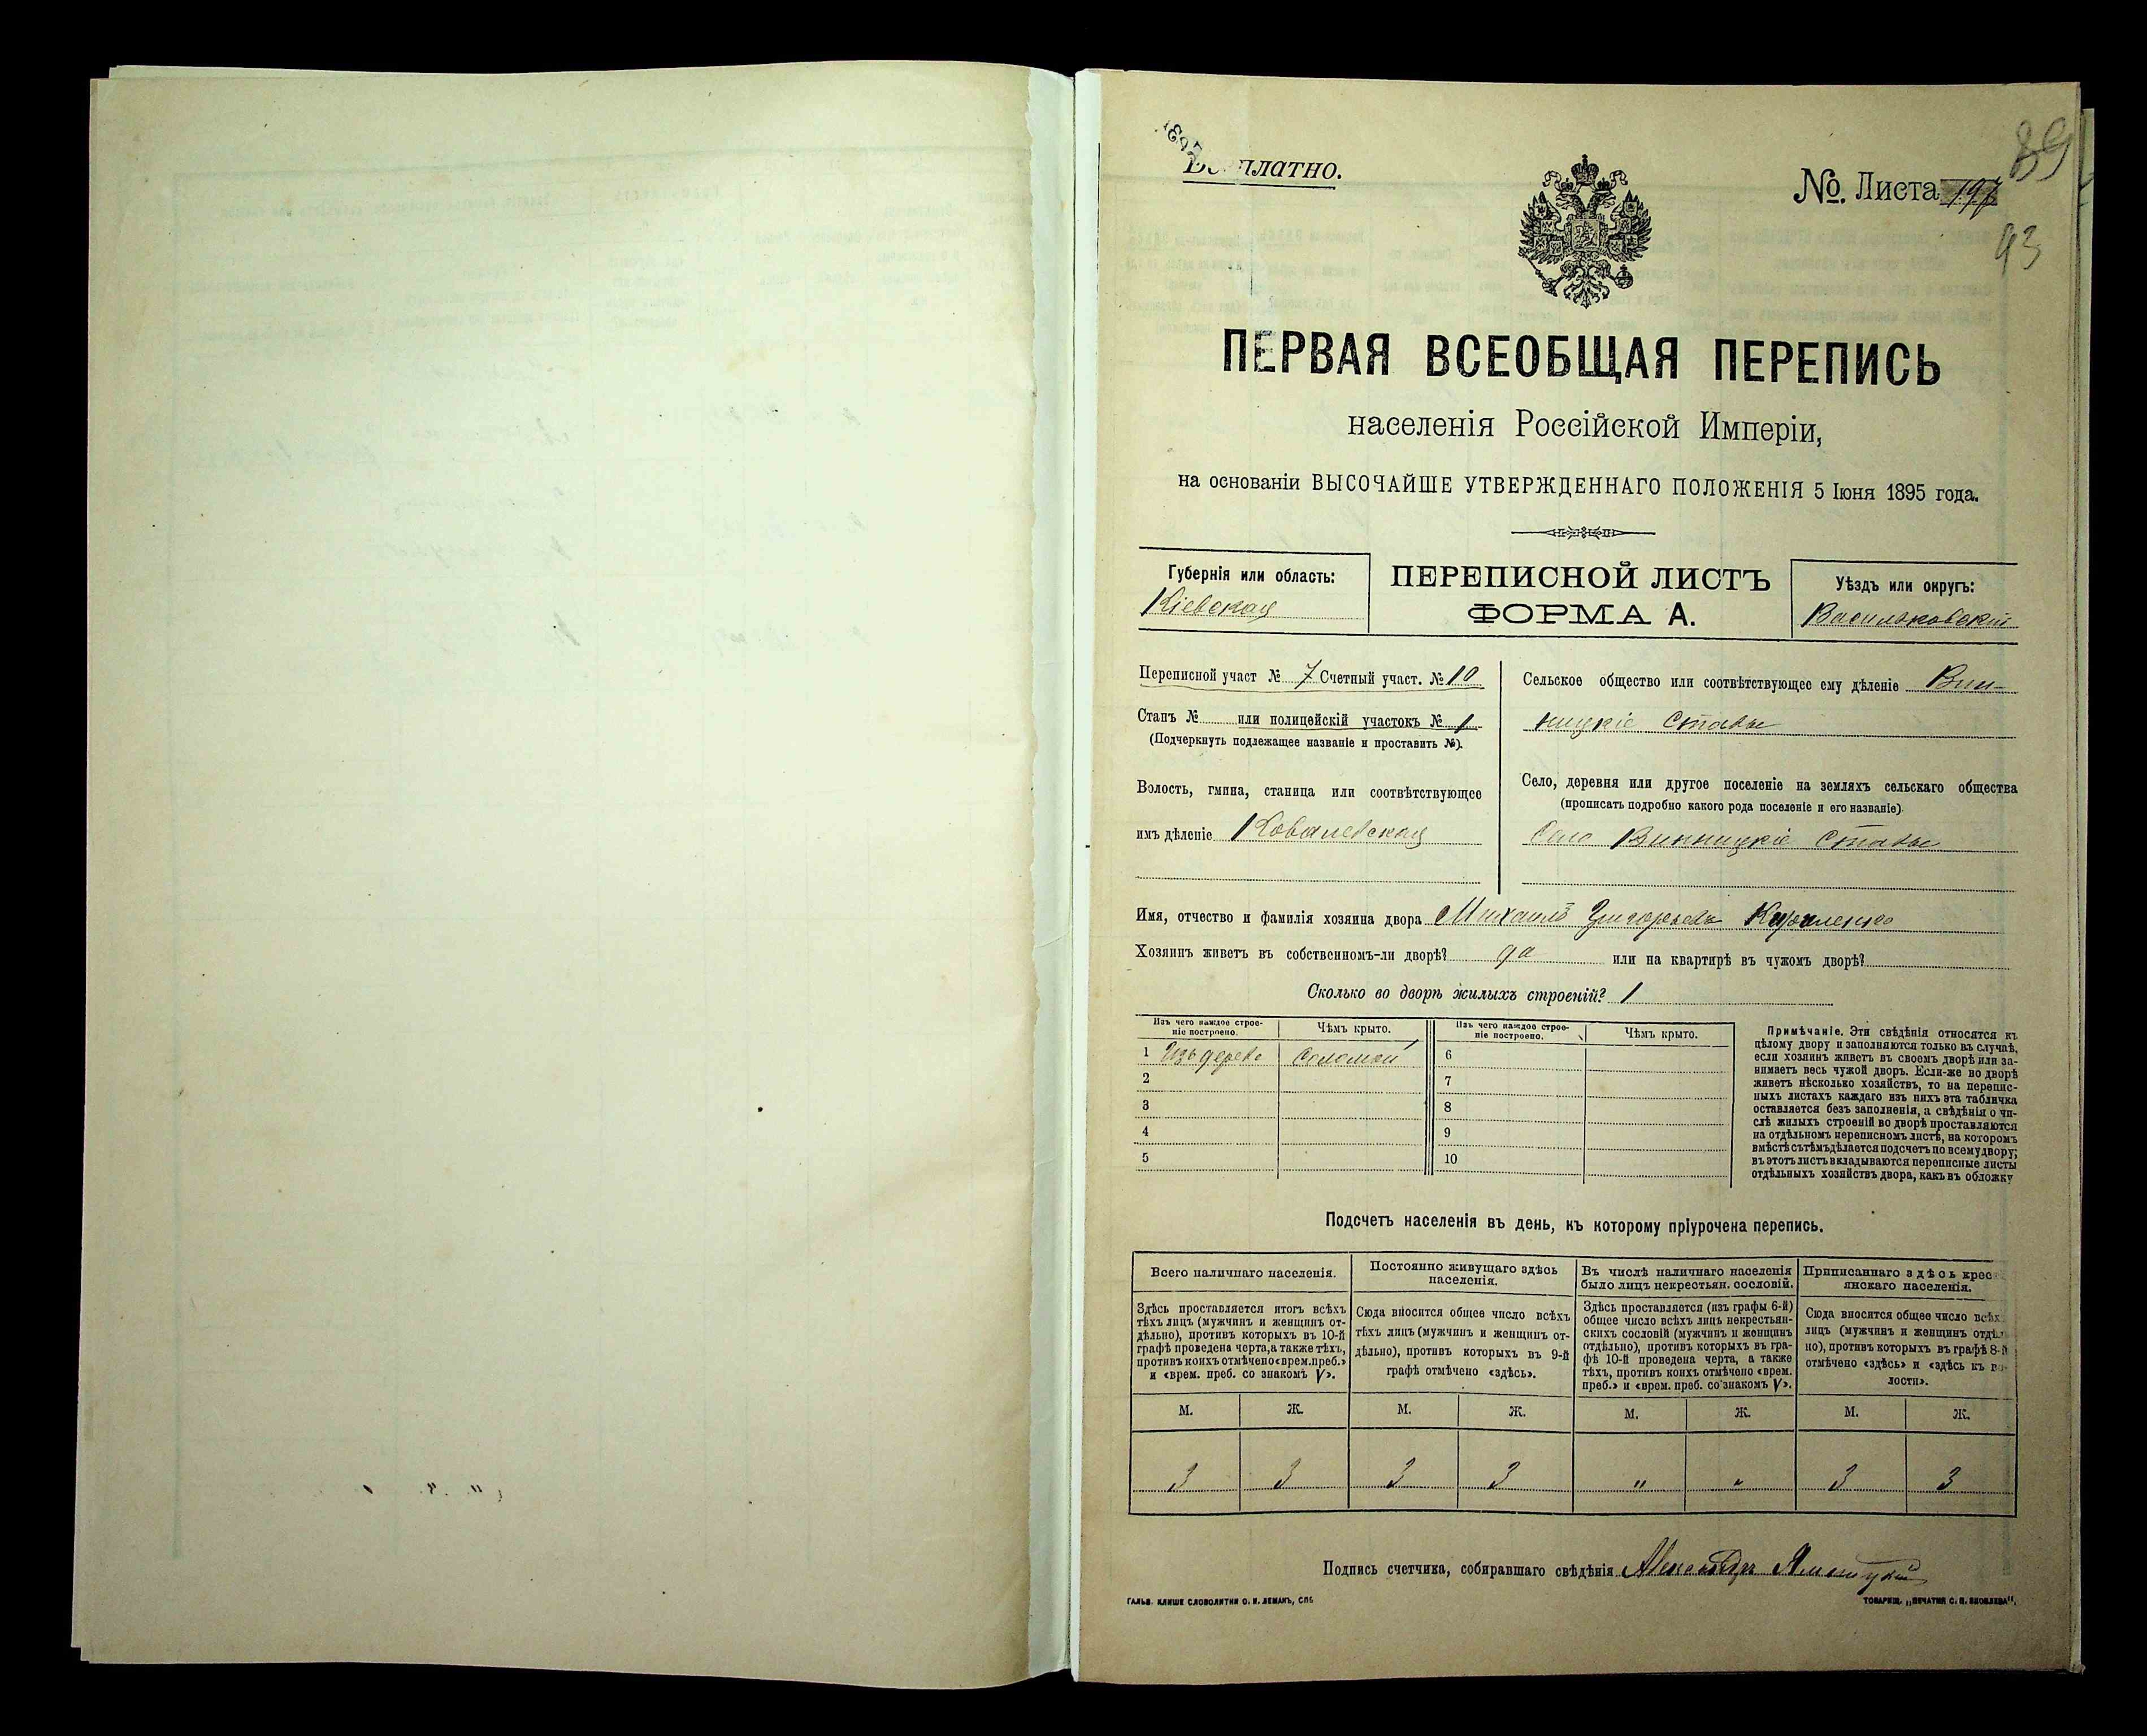 Бесплатно.
№ Листа 89
93
ПЕРВАЯ ВСЕОБЩАЯ ПЕРЕПИСЬ
населенія Россійской Имперіи,
на основаніи ВЫСОЧАЙШЕ УТВЕРЖДЕННАГО ПОЛОЖЕНІЯ 5 Іюня 1895 года.
Губернія или область:
Кіевская
ПЕРЕПИСНОЙ ЛИСТЪ
ФОРМА А.
Уѣздъ или округъ:
Васильковскій
Переписной участ № 7 Счетный участ. № 10
Станъ № или полицейскій участокъ № 1
(Подчеркнуть подлежащее названіе и проставить №).
Волость, гмина, станица или соотвѣтствующее
имъ дѣленіе Ковалевская
Сельское общество или соотвѣтствующее ему дѣленіе Вин-
ницкіе Ставы
Село, деревня или другое поселеніе на земляхъ сельскаго общества
(прописать подробно какого рода поселеніе и его названіе).
Село Винницкіе Ставы
Имя, отчество и фамилія хозяина двора Михаилъ Григорьевъ
Хозяинъ живетъ въ собственномъ-ли дворѣ? да или на квартирѣ въ чужомъ дворѣ?
Сколько во дворѣ жилыхъ строеній? 1
Изъ чего каждое строе-
ніе построено.
Чѣмъ крыто.
Изъ чего каждое строе-
ніе построено.
Чѣмъ крыто.
1 Изъ дерева Соломой 6
2 7
3 8
4 9
5 10
Примѣчаніе. Эти свѣдѣнія относятся къ
цѣлому двору и заполняются только въ случаѣ,
если хозяинъ живетъ въ своемъ дворѣ или за-
нимаетъ весь чужой дворъ. Если-же во дворѣ
живетъ нѣсколько хозяйствъ, то на перепис-
ныхъ листахъ каждаго изъ нихъ эта табличка
оставляется безъ заполненія, а свѣдѣнія о чи-
слѣ жилыхъ строеній во дворѣ проставляются
на отдѣльномъ переписномъ листѣ, на которомъ
вмѣстѣ съ тѣмъ дѣлается подсчетъ по всему двору;
въ этотъ листъ вкладываются переписные листы
отдѣльныхъ хозяйствъ двора, какъ въ обложку
Подсчетъ населенія въ день, къ которому пріурочена перепись.
Всего наличнаго населенія.
Здѣсь проставляется итогъ всѣхъ
тѣхъ лицъ (мужчинъ и женщинъ от-
дѣльно), противъ которыхъ въ 10-й
графѣ проведена черта, а также тѣхъ,
противъ коихъ отмѣчено «врем. преб.»
и «врем. преб. со знакомъ V».
Постоянно живущаго здѣсь
населенія.
Сюда вносится общее число всѣхъ
тѣхъ лицъ (мужчинъ и женщинъ от-
дѣльно), противъ которыхъ въ 9-й
графѣ отмѣчено «здѣсь».
Въ числѣ наличнаго населенія
было лицъ некрестьян. сословій.
Здѣсь проставляется (изъ графы 6-й)
общее число всѣхъ лицъ некрестьян-
скихъ сословій (мужчинъ и женщинъ
отдѣльно), противъ которыхъ въ гра-
фѣ 10-й проведена черта, а также
тѣхъ, противъ коихъ отмѣчено «врем.
преб.» и «врем. преб. со знакомъ V».
Приписаннаго здѣсь крес
янскаго населенія.
Сюда вносится общее число всѣхъ
лицъ (мужчинъ и женщинъ отдѣл
но), противъ которыхъ въ графѣ 8-й
отмѣчено «здѣсь» и «здѣсь къ во-
лости».
М. Ж. М. Ж. М. Ж. М. Ж.
3 3 3 3 " " 3 3
Подпись счетчика, собиравшаго свѣдѣнія Александръ
ГАЛЬВ. КЛИШЕ СЛОВОЛИТНИ О. И. ЛЕМАНЪ, СПБ
ТОВАРИЩ. „ПЕЧАТНЯ С. П. ЯКОВЛЕВА“.